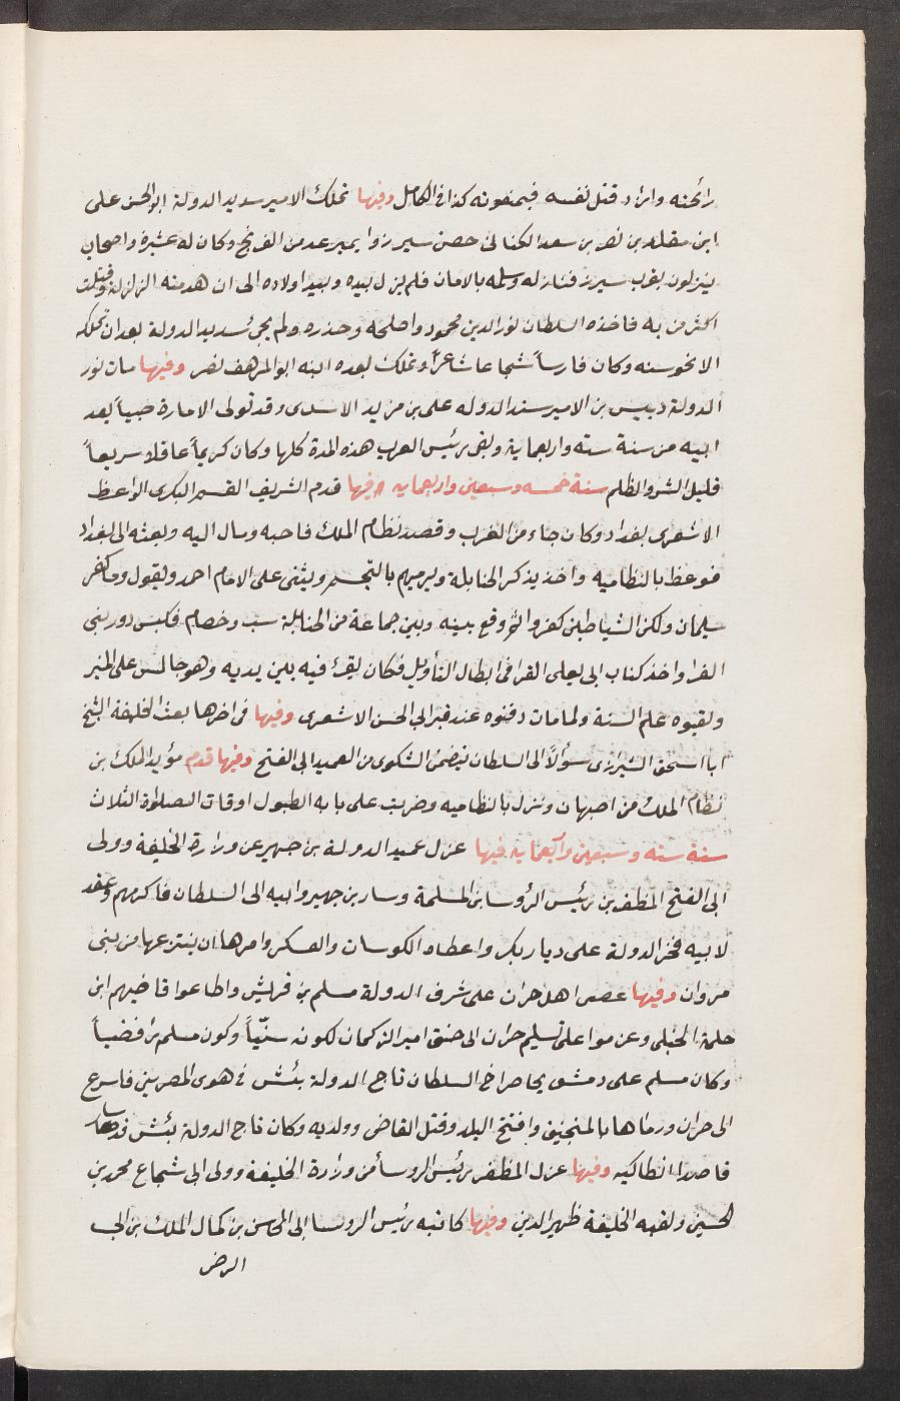 رائحته واراد قتل نفسه فيمنعونه كذا في الكامل وفيها تملك الامير سديد الدولة ابو الحسن على
ابن مقلد بن نصر بن سعد الكناني حصن سيزر وا من الفرنج وكان له عشيرة واصحاب
ينزلون بقرب سيزر فنازله وسلمه بالامان فلم يزل بيده وبيد اولاده الى ان هدمته الزلزلة وقتلت
اكثر من به فاخذه السلطان نور الدين محمود واصلحه وحذره ولم يجئ سديد الدولة بعد ان تملكه
الا نحو سنه وكان فارساً شجاعا شاعراً وتملك بعده ابنه ابو المرهف نصر وفيها مات نور
الدولة دبيس بن الامير سند الدوله على بن مزيد الاسدى وقد تولى الامارة صبياً بعد
ابيه من سنة سته واربعماية وبقى رئيس العرب هذه المدة كلها وكان كريماً عاقلا سريعاً
قليل الشر والظلم سنة خمسه وسبعين واربعمايه وفيها قدم الشريف البكرى الواعظ
الاشعرى بغداد وكان جاء من الغرب وقصد نظام الملك فاحبه ومال اليه وبعثه الى بغداد
فوعظ بالنظاميه واخذ يذكر الحنابلة ويرميهم بالتجسم ويثنى على الامام احمد ويقول وما كفر
سليمان ولكن الشياطين كفروا ووقع بينه وبين جماعة من الحنابلة سب وخصام فكبس دور بنى
الفرا واخذ كتاب ابى يعلى الفرا فى ابطال التأويل فكان يقرء فيه بين يديه وهو جالس على المنبر
ولقبوه علم السنة ولما مات دفنوه عند قبر ابي الحسن الاشعرى وفيها فى اخرها بعث الخليفة الشيخ
ابا اسحق الشيرازى سؤالاً الى السلطان يتضمن الشكوى من العميد ابى الفتح وفيها قدم مؤيد الملك بن
نظام الملك من اصبهان ونزل بالنظاميه وضربت على بابه الطبول اوقات الصلواة الثلاث
سنة سته وسبعين واربعمايه فيها عزل عميد الدولة بن جهير عن وزارة الخليفة وولى
ابى الفتح المظفر بن رئيس الرؤسا بن المسلمة وسار بن جهير وابيه الى السلطان فاكرمهم وعقد
لابيه فخر الدولة على ديار بكر واعطاه الكوسات والعسكر وامرها ان ينتزعها من بنى
مروان وفيها عصى اهل حران على شرف الدولة مسلم بن قريش واطاعوا قاضيهم ابن
حلمة الحنبلى وعزموا على تسليم حران الى امير التركمان لكونه سنّياً وكون مسلم رافضياً
وكان مسلم على دمشق يحاصر اخا السلطان تاج الدولة في هوى المصريين فاسرع
الى حران ورماها بالمنجنيق وافتتح البلد وقتل القاضى وولديه وكان تاج الدولة
قاصدا انطاكيه وفيها عزل المظفر بن رئيس الروسأ من وزارة الخليفة وولى ابى شجاع محمد بن
الحسين ولقبه الخليفة ظهير الدين وفيها كاتبه رئيس الروسا ابى المحاسن بن كمال الملك بن ابى
الرضى